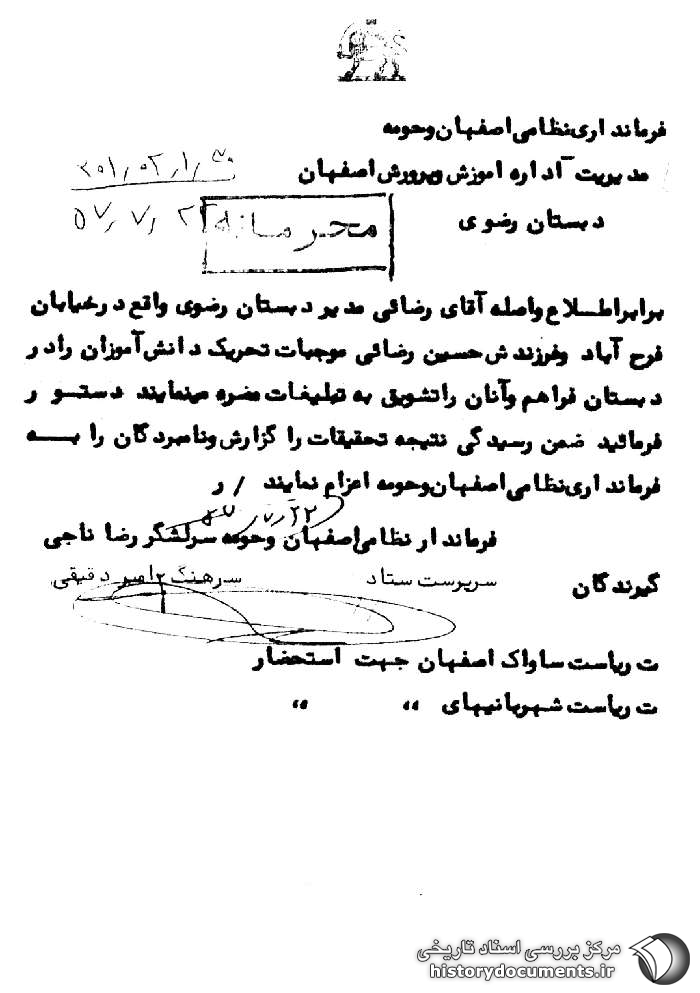 فرمانداری نظامی اصفهان وحومه
مدیریت آداره اموزش وپرورش اصفهان
۳۰۱٫۰۲٫۱٫
دبستان رضوی
محرمانه
۵۷٫۷٫۲۲
برابراطلاع واصله آقای رضائی مدیر دبستان رضوی واقع درخیابان
فرح آباد وفرزندش حسین رضائی موجبات تحریک دانش آموزان رادر
دبستان فراهم وآنان راتشویق به تبلیغات مضره مینمایند دستور
فرمائید ضمن رسیدگی نتیجه تحقیقات را گزارش ونامبردگان را بـــه
فرمانداری نظامی اصفهان وحومه اعزام نمایند / ر
فرماندار نظامی اصفهان وحومه سرلشگر رضا ناجی
گیرندگان سرپرست ستاد سرهنگ ۲ امیر دقیقی
ت ریاست ساواک اصفهان جهت استحضار
ت ریاست شهربانیهای ,, ,,
مرکز بررسی اسناد تاریخی
historydocuments.ir